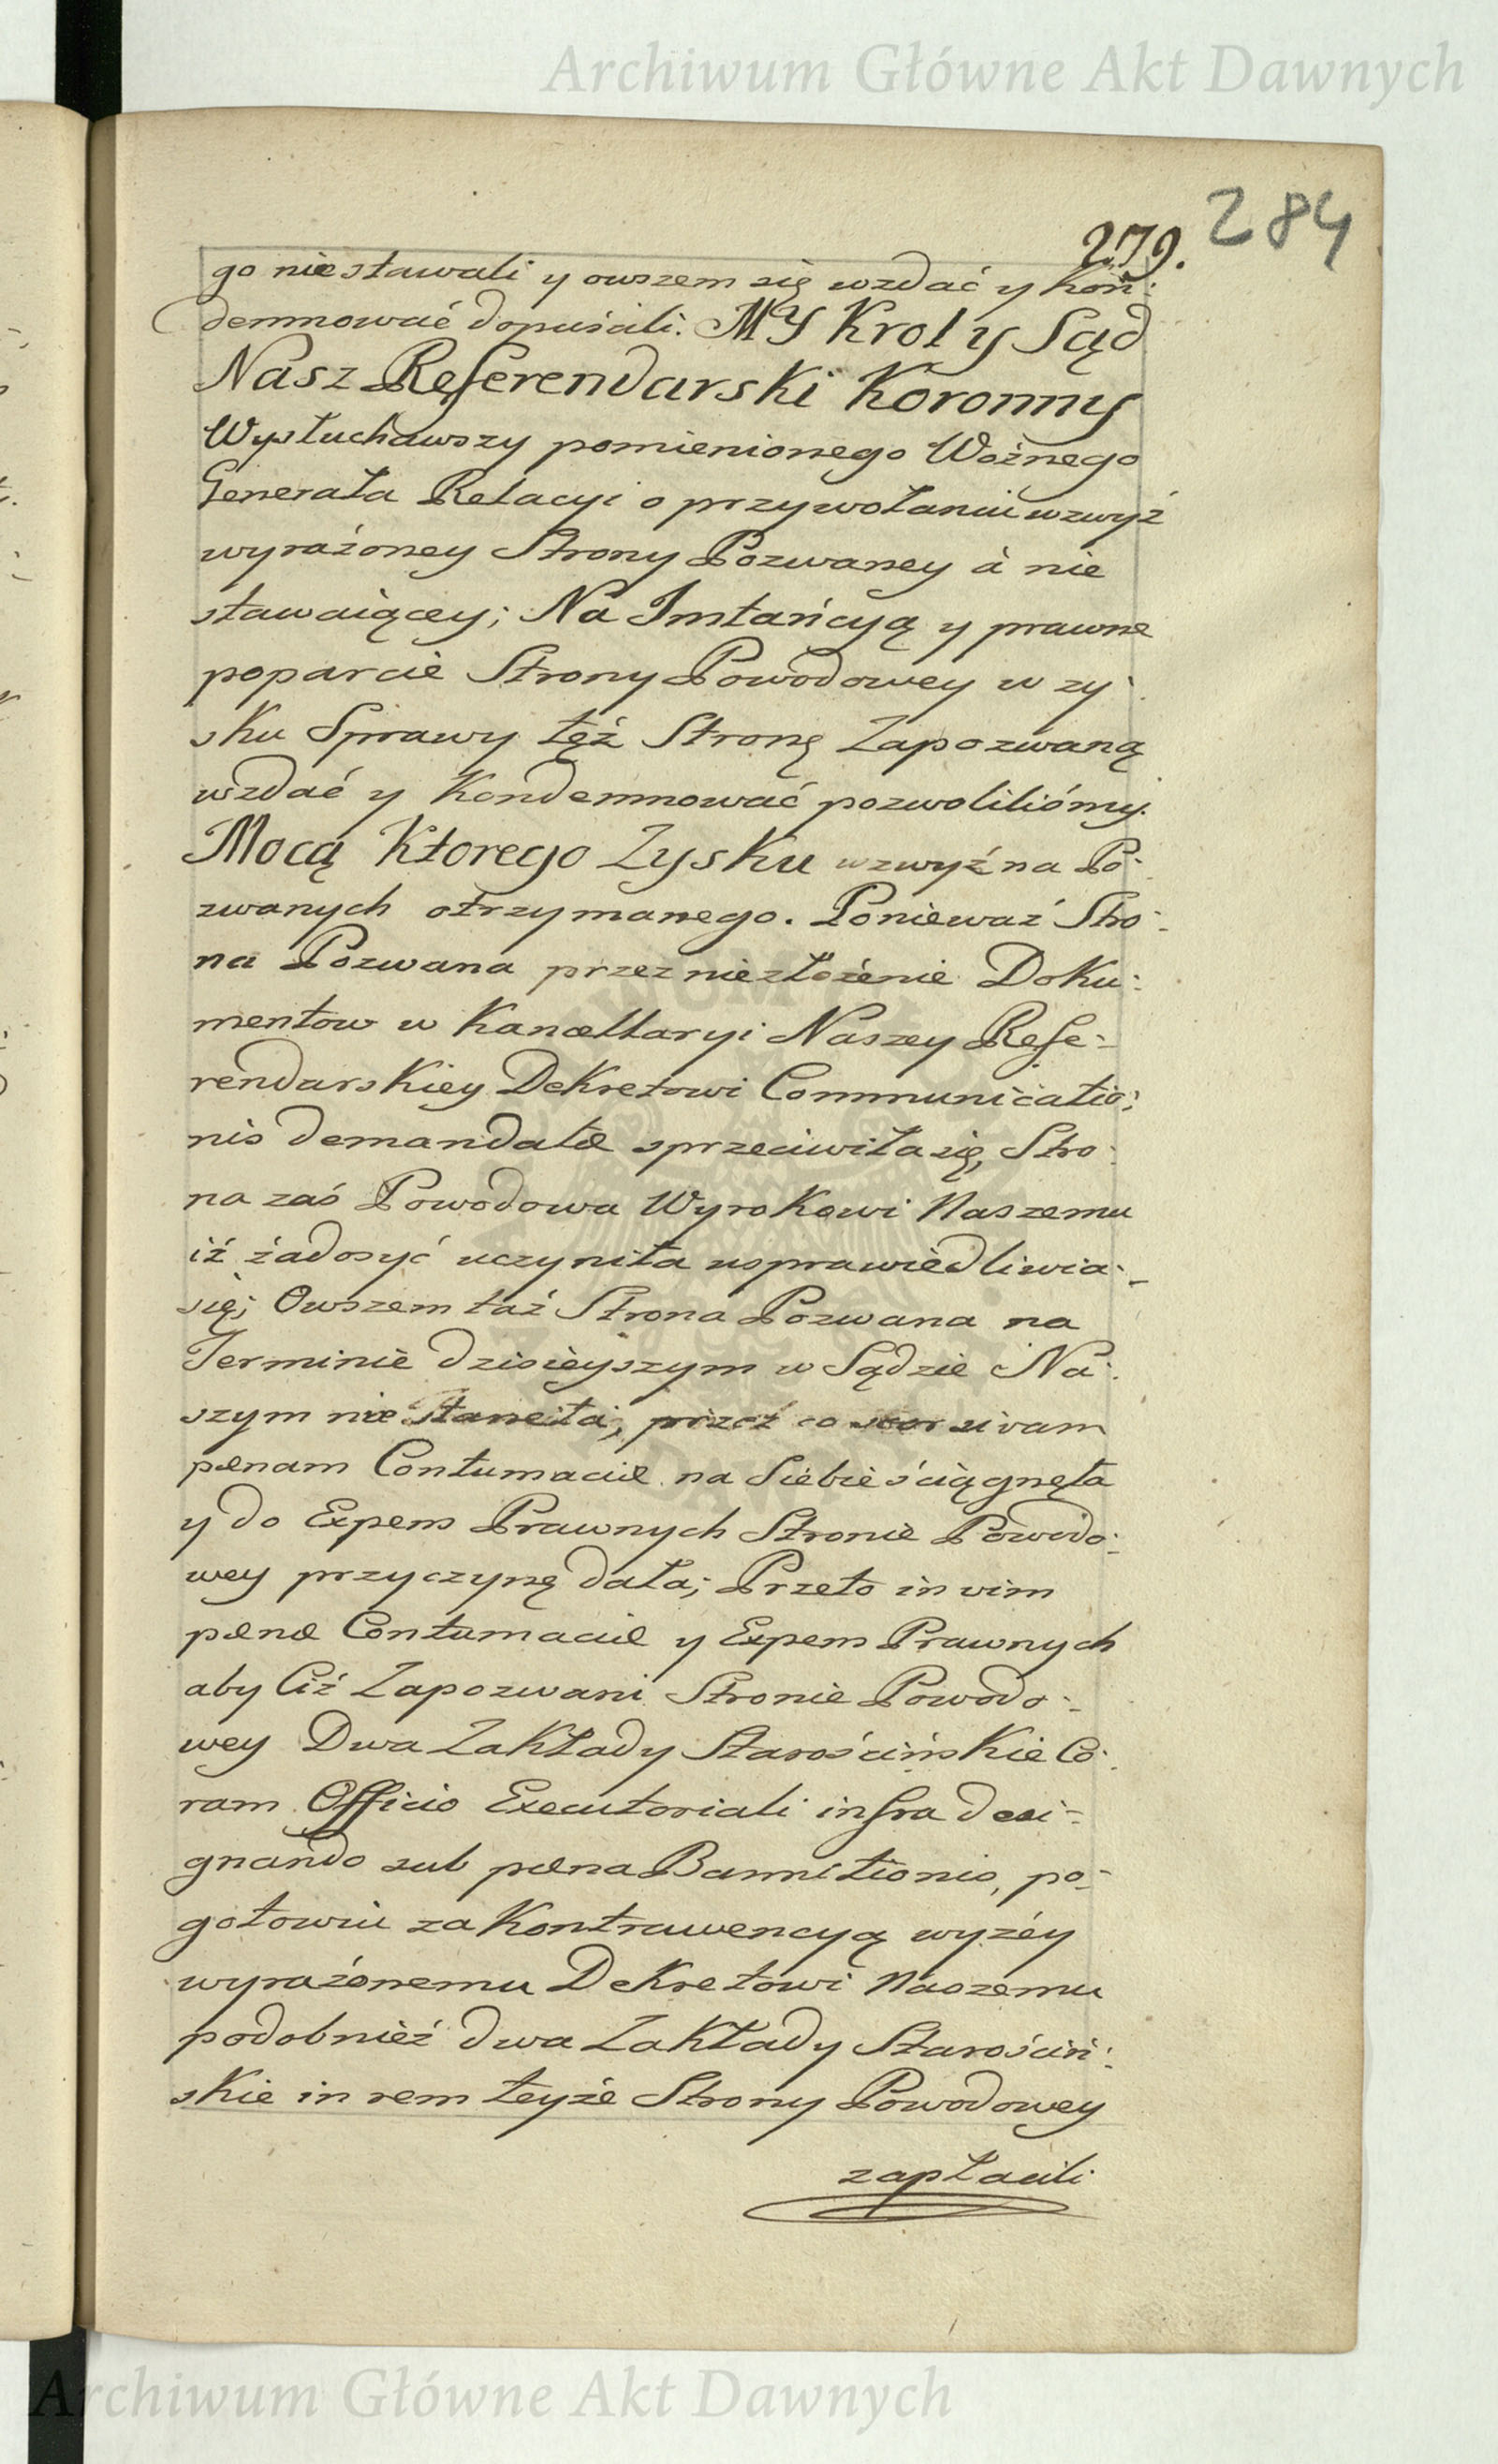 Archiwum Główne Akt Dawnych
284
279.
go nie stawali y owszem się wzdać y Kon:
demnować dopuścili. MY Krol y Sąd
Nasz Referendarski Koronny
Wysłuchawszy pomienionego Woźnego
Generała Relacyi o przywołaniu wzwyż
wyrażoney Strony Pozwaney à nie
stawaiącey; Na Instańcyą y prawne
poparcie Strony Powodowey w zy:
sku Sprawy téż Stronę Zapozwaną
wzdać y Kondemnować pozwoliliśmy.
Mocą Ktorego Zysku wzwyż na Po:
zwanych otrzymanego. Ponieważ Stro:
na Pozwana przez niezłożenie Doku:
mentow w Kancellaryi Naszey Refe:
rendarskiey Dekretowi Communicatio:
nis demandatæ sprzeciwiła się, Stro:
na zaś Powodowa Wyrokowi Naszemu
iż żadosyć uczyniła usprawiedliwia:
się; Owszem taż Strona Pozwana na
Terminie dzisieyszym w Sądzie Na:
szym nie staneła, przez co
pænam Contumaciæ na Siebie ściągnęła
y do Expens Prawnych Stronie Powodo:
wey przyczynę dała; Przeto in vim
pænæ Contumaciæ y Expens Prawnych
aby Ciż Zapozwani Stronie Powodo:
wey Dwa Zakłady Starościńskie Co:
ram Officio Executoriali infra desi:
gnando sub pæna Bannitionis, po:
gotowiu za Kontrawencyą wyżéy
wyrażonemu Dekretowi Naszemu
podobnież dwa Zakłady Starościń:
skie in rem teyże Strony Powodowey
zapłacili
Archiwum Główne Akt Dawnych